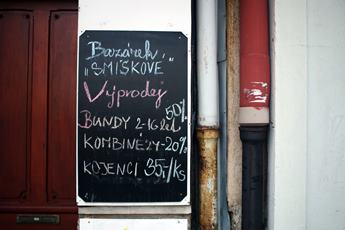 Bazárek
„SMÍŠKOVÉ"
Výprodej
50%
BUNDY 2-16let
KOMBINÉZY-20%
KOJENCI 35,-/ks